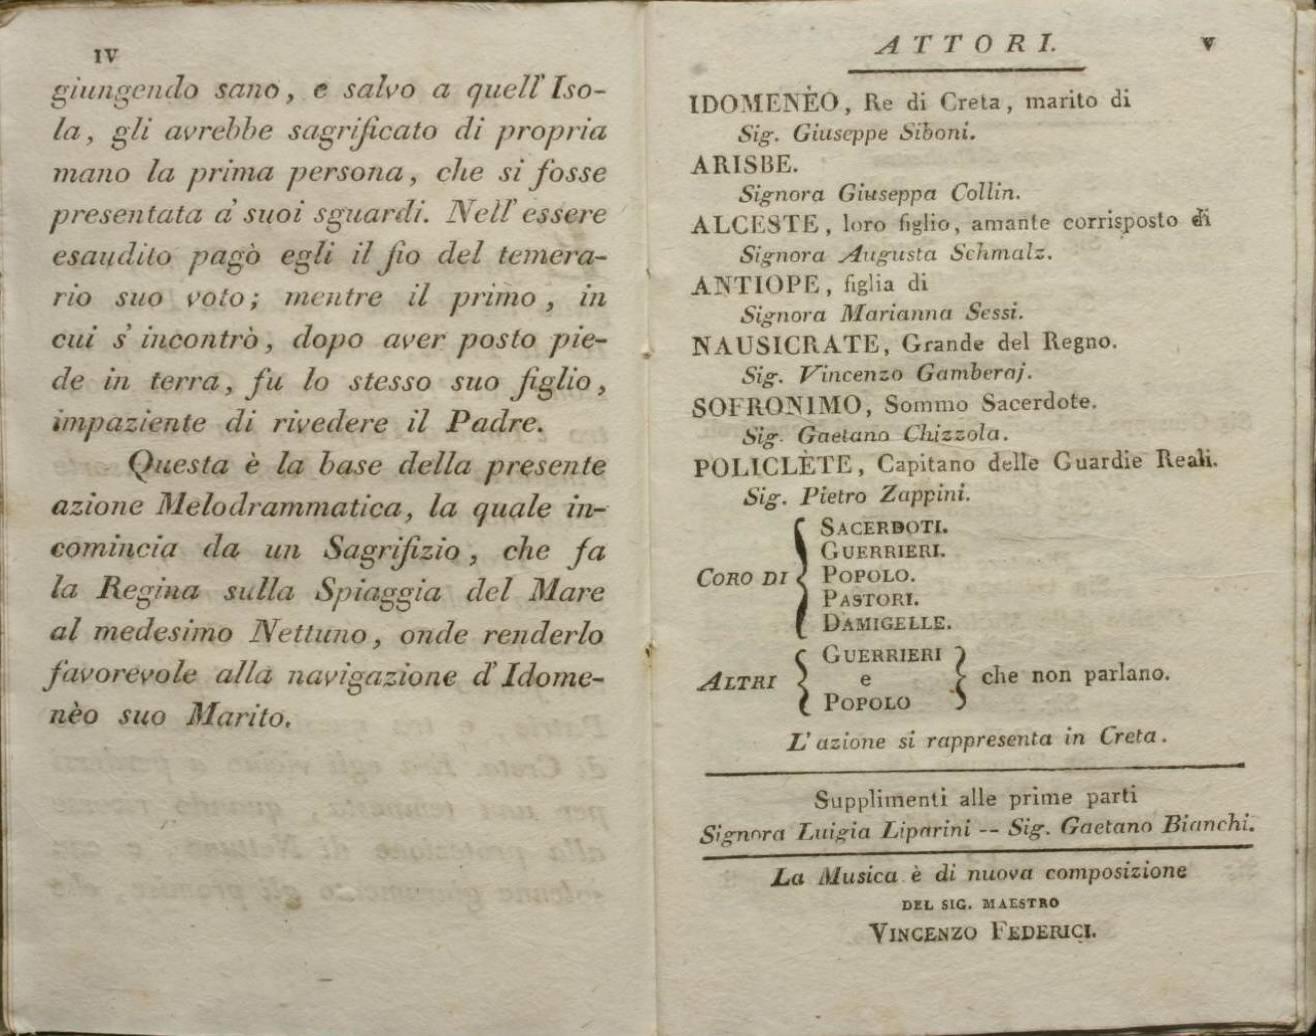 IV
giungendo sano, e salvo a quell' Iso-
la, gli avrebbe sagrificato di propria
mano la prima persona, che si fosse
presentata a' suoi sguardi. Nell' essere
esaudito pagò egli il fio del temera-
rio suo voto; mentre il primo, in
cui s' incontrò, dopo aver posto pie-
de in terra, fu lo stesso suo figlio,
impaziente di rivedere il Padre.
Questa è la base della presente
azione Melodrammatica, la quale in-
comincia da un Sagrifizio, che fa
la Regina sulla Spiaggia del Mare
al medesimo Nettuno, onde renderlo
favorevole alla navigazione d' Idome-
nèo suo Marito.
ATTORI. V
IDOMENÈO, Re di Creta, marito di
Sig. Giuseppe Siboni.
ARISBE.
Signora Giuseppa Collin.
ALCESTE, loro figlio, amante corrisposto di
Signora Augusta Schmalz.
ANTIOPE, figlia di
Signora Marianna Sessi.
NAUSICRATE, Grande del Regno.
Sig. Vincenzo Gamberaj.
SOFRONIMO, Sommo Sacerdote.
Sig. Gaetano Chizzola.
POLICLÈTE, Capitano delle Guardie Reali.
Sig. Pietro Zappini.
CORO DI
SACERDOTI.
GUERRIERI.
POPOLO.
PASTORI.
DAMIGELLE.
ALTRI
GUERRIERI
e
POPOLO
che non parlano.
L' azione si rappresenta in Creta.
Supplimenti alle prime parti
Signora Luigia Liparini -- Sig. Gaetano Bianchi.
La Musica è di nuova composizione
DEL SIG. MAESTRO
VINCENZO FEDERICI.